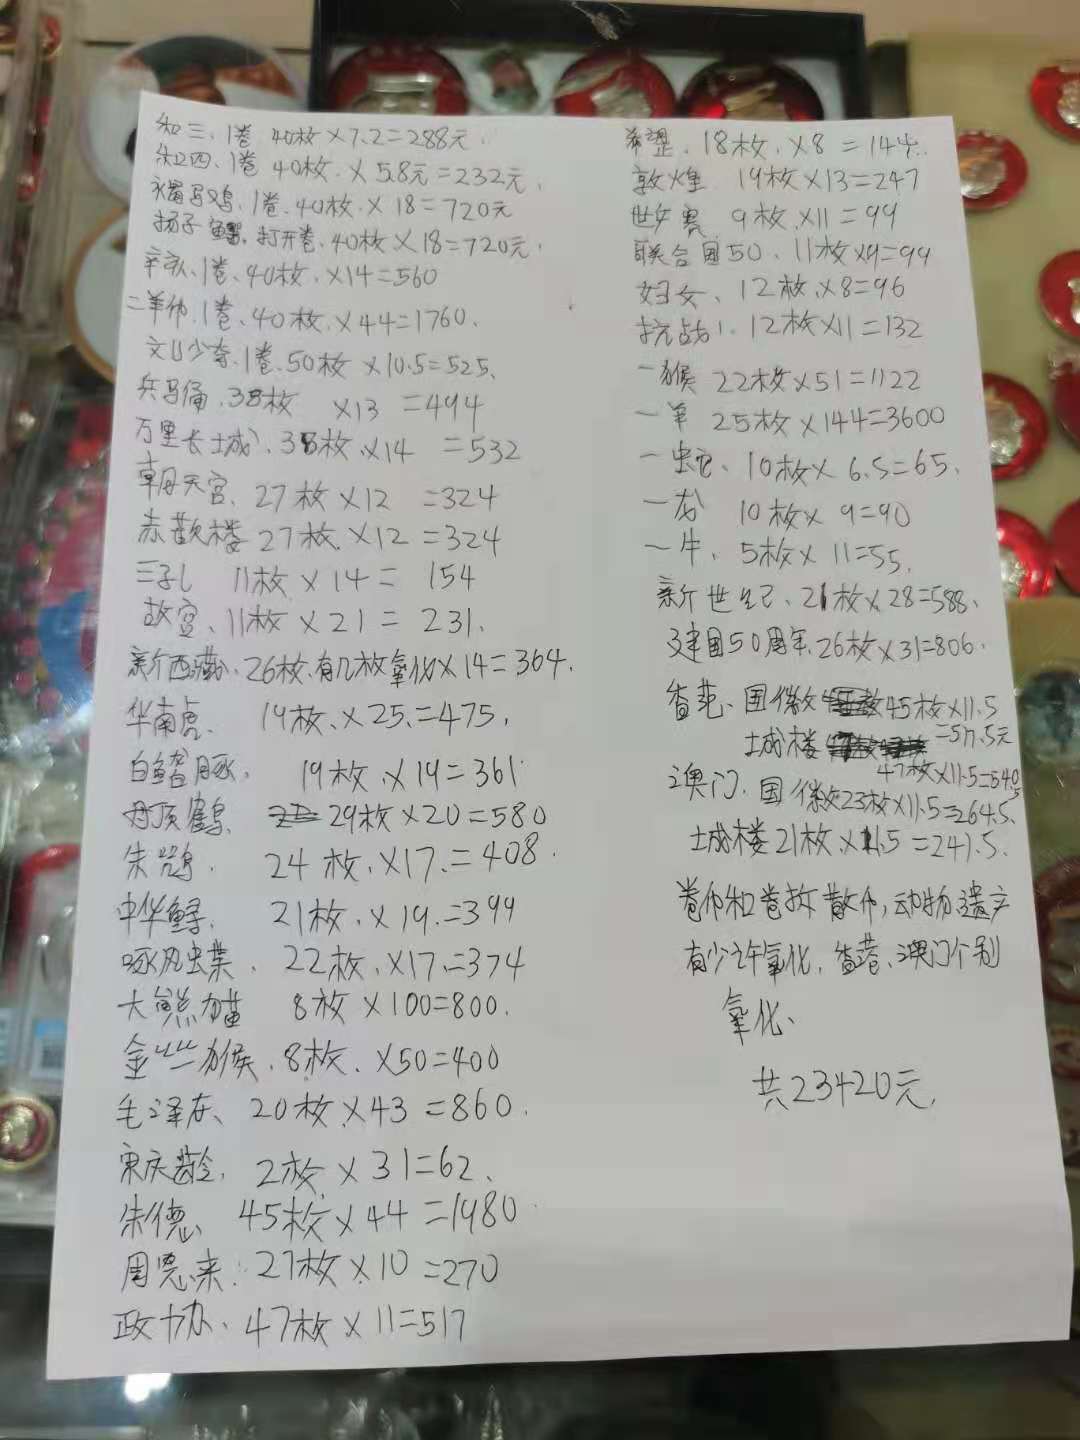 和三、1卷 40枚×7.2=288元.
和四、1卷 40枚.×5.8元=232元.
褐马鸡.1卷.40枚.×18=720元
扬子鳄.打开卷.40枚×18=720元.
1卷、40枚.×14=560
二羊币.1卷、40枚.×44=1760.
刘少奇.1卷.50枚×10.5=525.
兵马俑.38枚 ×13=494
万里长城.38枚.×14=532
朝天宫、27枚×12=324
赤嵌楼 27枚.×12=324
三孔 11枚×14=154
故宫、11枚×21=231.
新西藏、26枚.有几枚氧化×14=364.
华南虎. 19枚.×25.=475.
白鳍豚. 19枚.×19=361
丹顶鹤. 29枚×20=580
朱鹮. 24枚.×17.=408.
中华鲟. 21枚.×19.=399
啄凤蝶. 22枚.×17.=374
大熊猫 8枚×100=800.
金丝猴.8枚.×50=400
毛泽东、20枚×43=860.
宋庆龄. 2枚×31=62.
朱德、45枚×44=1980.
周恩来. 27枚×10=270
政协、47枚×11=517
希望.18枚.×8=144.
敦煌. 19枚×13=247
世乒赛 9枚.×11=99
联合国50、11枚×9=99
妇女、12枚.×8=96
抗战1.12枚×11=132
一猴 22枚×51=1122
一羊 25枚×144=3600
一蛇、10枚×6.5=65.
一龙 10枚×9=90
一牛、5枚×11=55.
新世纪、21枚×28=588.
建国50周年.26枚×31=806.
香港、国徽 45枚×11.5
=517.5元
城楼
47枚×11.5=540.5
澳门.国徽23枚×11.5=264.5.
城楼21枚.×11.5=241.5.
卷币和卷拆散币,动物遗产
有少许氧化.香港、澳门个别
氧化、
共23420元.